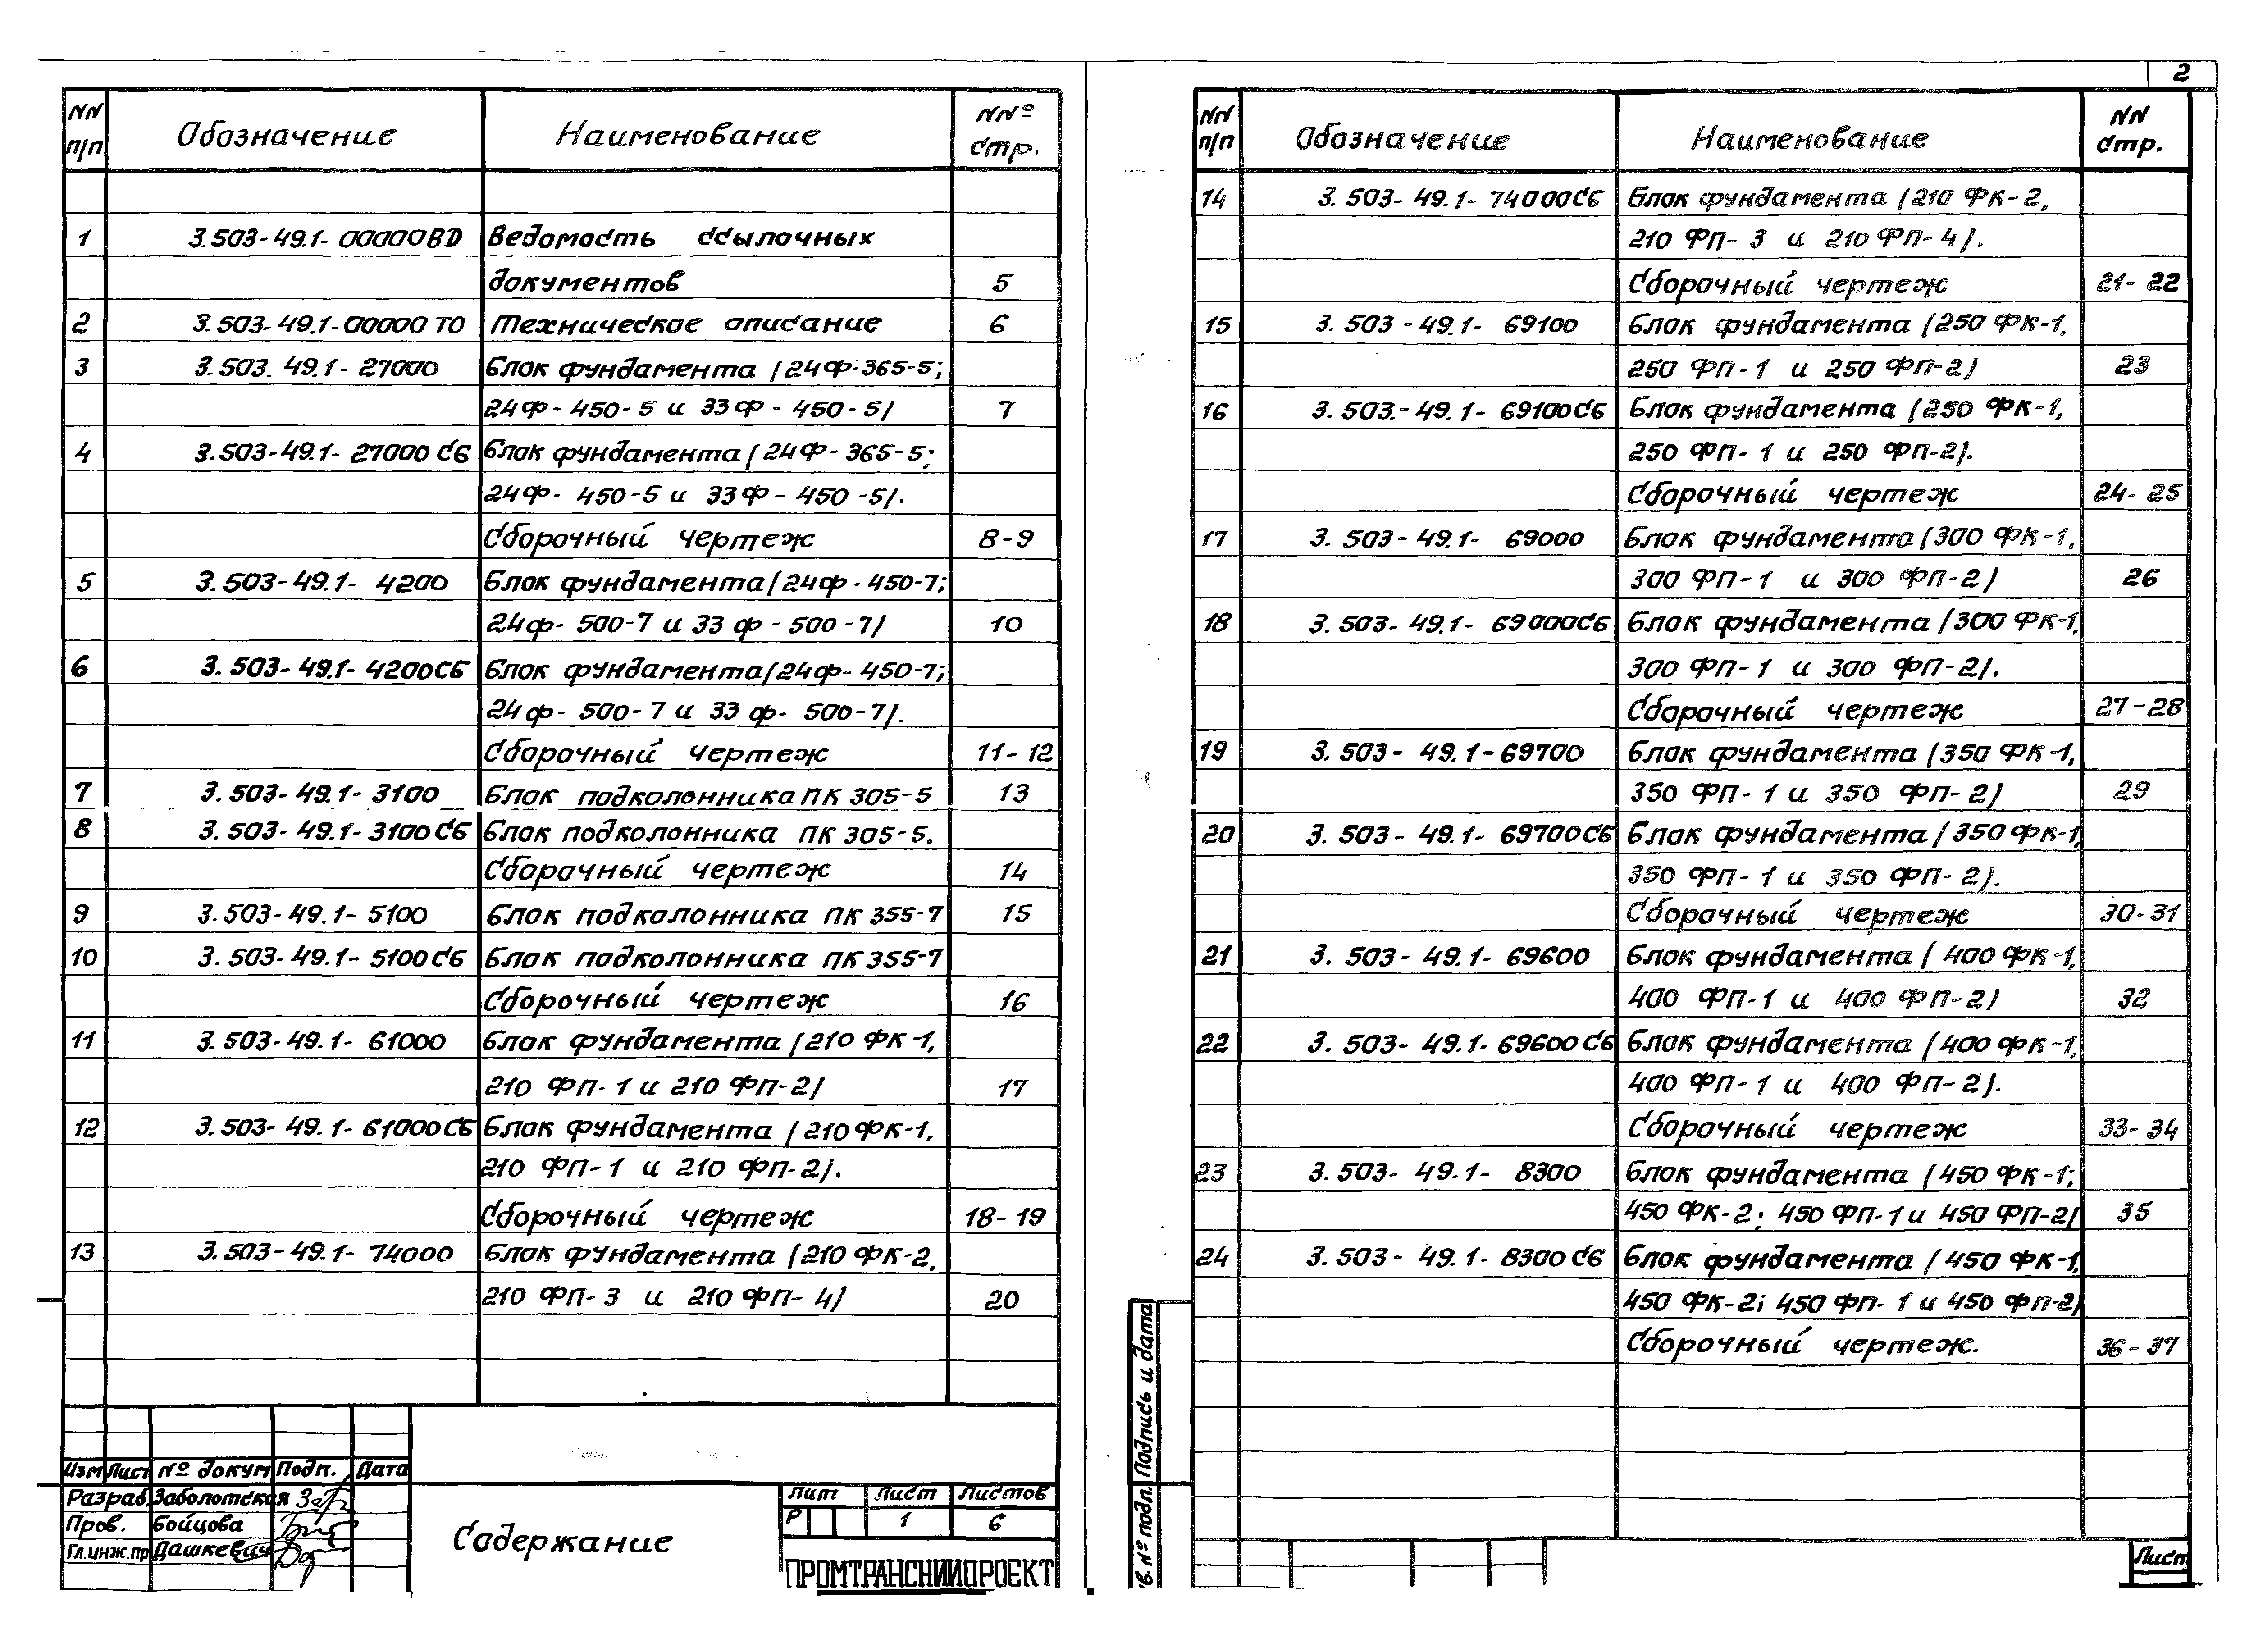 2
NN п/п Обозначение Наименование NNº стр.
1 3.503-49.1-00000ВД Ведомость ссылочных
документов 5
2 3.503-49.1-00000 ТО Техническое описание 6
3 3.503. 49.1-27000 Блок фундамента /24ф-365-5;
24ф-450-5 и 33ф-450-5/ 7
4 3.503-49.1-27000 СБ Блок фундамента /24ф-365-5;
24ф-450-5 и 33ф-450-5/.
Сборочный чертеж 8-9
5 3.503-49.1-4200 Блок фундамента /24ф-450-7;
24ф-500-7 и 33ф-500-7/ 10
6 3.503-49.1-4200СБ Блок фундамента /24ф-450-7;
24ф-500-7 и 33ф-500-7/.
Сборочный чертеж 11-12
7 3.503-49.1-3100 Блок подколонника ПК 305-5 13
8 3.503-49.1-3100СБ Блок подколонника ПК 305-5.
Сборочный чертеж 14
9 3.503-49.1-5100 Блок подколонника ПК 355-7 15
10 3.503-49.1-5100СБ Блок подколонника ПК 355-7
Сборочный чертеж 16
11 3.503-49.1-61000 Блок фундамента /210 ФК-1,
210 ФП-1 и 210 ФП-2/ 17
12 3.503-49.1-61000СБ Блок фундамента /210ФК-1,
210 ФП-1 и 210 ФП-2/.
Сборочный чертеж 18-19
13 3.503-49.1-74000 Блок фундамента /210 ФК-2,
210 ФП-3 и 210 ФП-4/ 20
Изм Лист Nº докум Подп. Дата
Разраб. Заболотская
Пров. Бойцова
Гл.инж.пр Дашкевич
Содержание
Лит Лист Листов
Р 1 6
ПРОМТРАНСНИИПРОЕКТ
NN п/п Обозначение Наименование NN стр.
14 3.503-49.1-74000СБ Блок фундамента /210 ФК-2,
210 ФП-3 и 210 ФП-4/.
Сборочный чертеж 21-22
15 3.503-49.1-69100 Блок фундамента /250 ФК-1,
250 ФП-1 и 250 ФП-2/ 23
16 3.503.-49.1-69100СБ Блок фундамента /250 ФК-1,
250 ФП-1 и 250 ФП-2/.
Сборочный чертеж 24-25
17 3.503-49.1-69000 Блок фундамента /300 ФК-1,
300 ФП-1 и 300 ФП-2/ 26
18 3.503-49.1-69000СБ Блок фундамента /300 ФК-1,
300 ФП-1 и 300 ФП-2/.
Сборочный чертеж 27-28
19 3.503-49.1-69700 Блок фундамента /350 ФК-1,
350 ФП-1 и 350 ФП-2/ 29
20 3.503-49.1-69700СБ Блок фундамента /350 ФК-1,
350 ФП-1 и 350 ФП-2/.
Сборочный чертеж 30-31
21 3.503-49.1-69600 Блок фундамента /400 ФК-1,
400 ФП-1 и 400 ФП-2/ 32
22 3.503-49.1-69600СБ Блок фундамента /400 ФК-1,
400 ФП-1 и 400 ФП-2/.
Сборочный чертеж 33-34
23 3.503-49.1-8300 Блок фундамента /450 ФК-1;
450 ФК-2; 450 ФП-1 и 450 ФП-2/ 35
24 3.503-49.1-8300СБ Блок фундамента /450 ФК-1,
450 ФК-2; 450 ФП-1 и 450 ФП-2/
Сборочный чертеж. 36-37
в. Nº подл. Подпись и дата
Лист